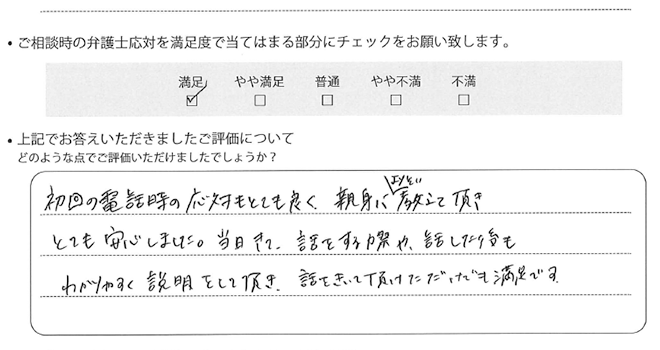 ・ご相談時の弁護士応対を満足度で当てはまる部分にチェックをお願い致します。
満足 やや満足 普通 やや不満 不満
・上記でお答えいただきましたご評価について
どのような点でご評価いただけましたでしょうか？
初回の電話時の応対もとても良く、親身に教えて頂き
とても安心しました。当日きて、話をする際や、話した後も
わかりやすく説明をして頂き、話をきいて頂けただけでも満足です